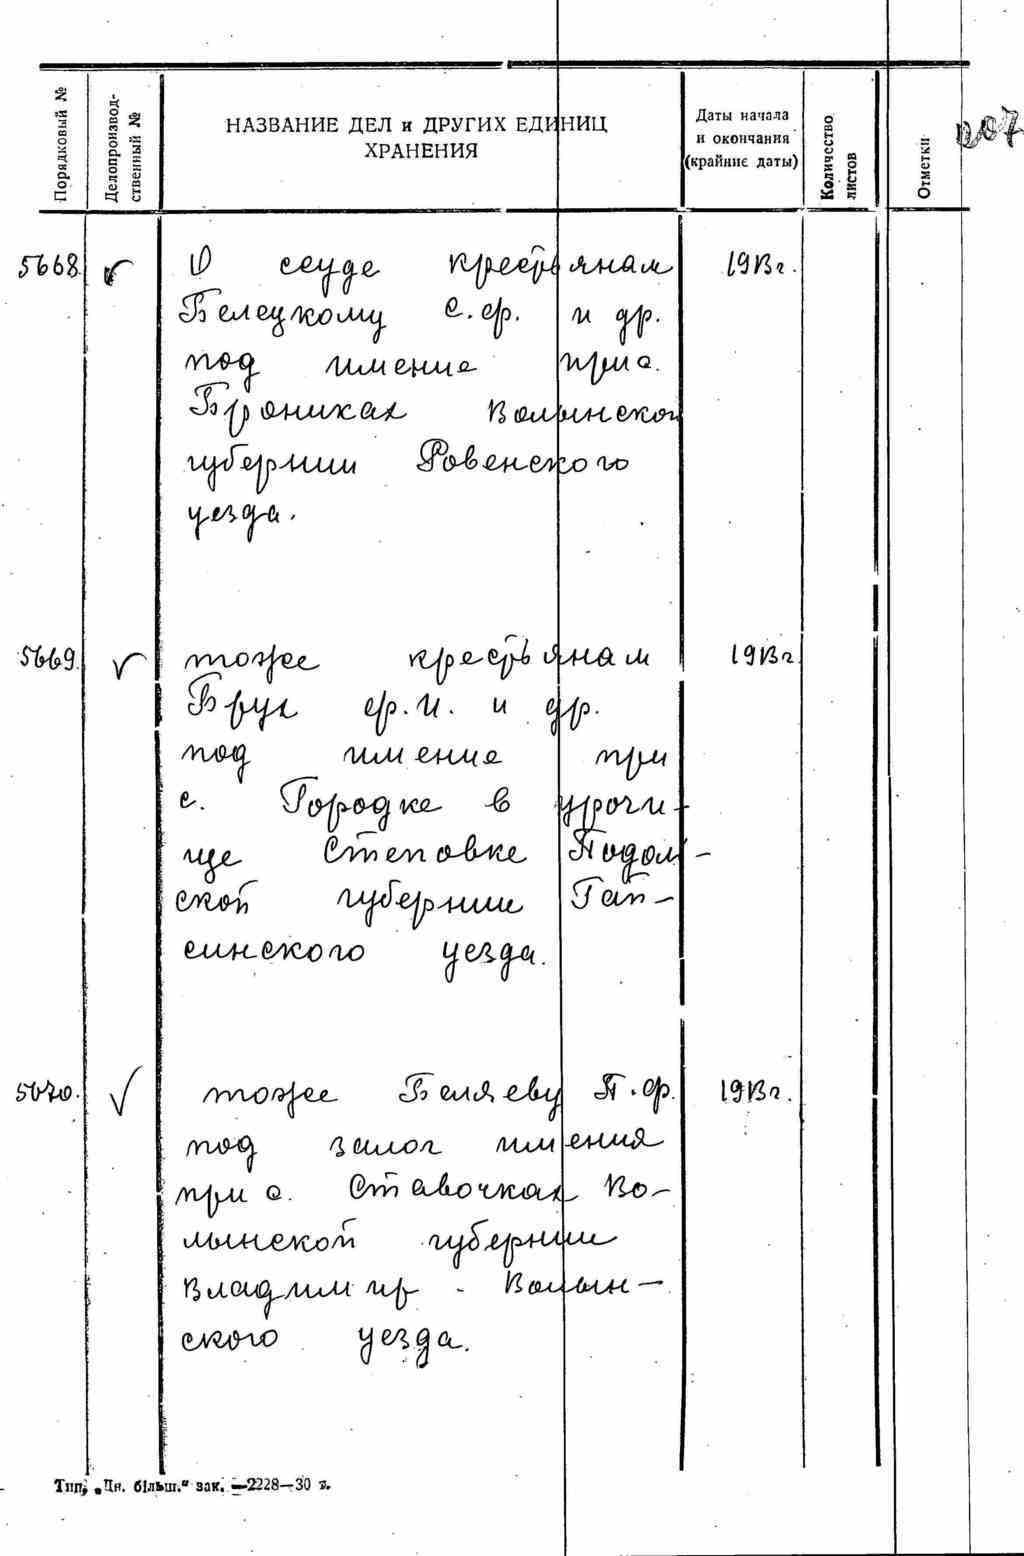 Порядковый №
Делопроизвод-
ственный №
НАЗВАНИЕ ДЕЛ и ДРУГИХ ЕДИНИЦ
ХРАНЕНИЯ
Даты начала
и окончания
(крайние даты)
Количество
листов
Отметки
5668. О ссуде крестьянам 1913г.
Белецкому С.Ф. и др.
под имение при с.
Брониках Волынской
губернии Ровенского
уезда.
5669. тоже крестьянам 1913г.
Брух Ф.И. и др.
под имение при
с. Городке в урочи-
ще Степовке Подоль-
ской губернии Гай-
синского уезда.
5670. тоже Беляеву П.Ф. 1913г.
под залог имения
при с. Ставочках Во-
лынской губернии
Владимир-Волын-
ского уезда.
Тип. „Дн. більш." зак. —2228—30 т.